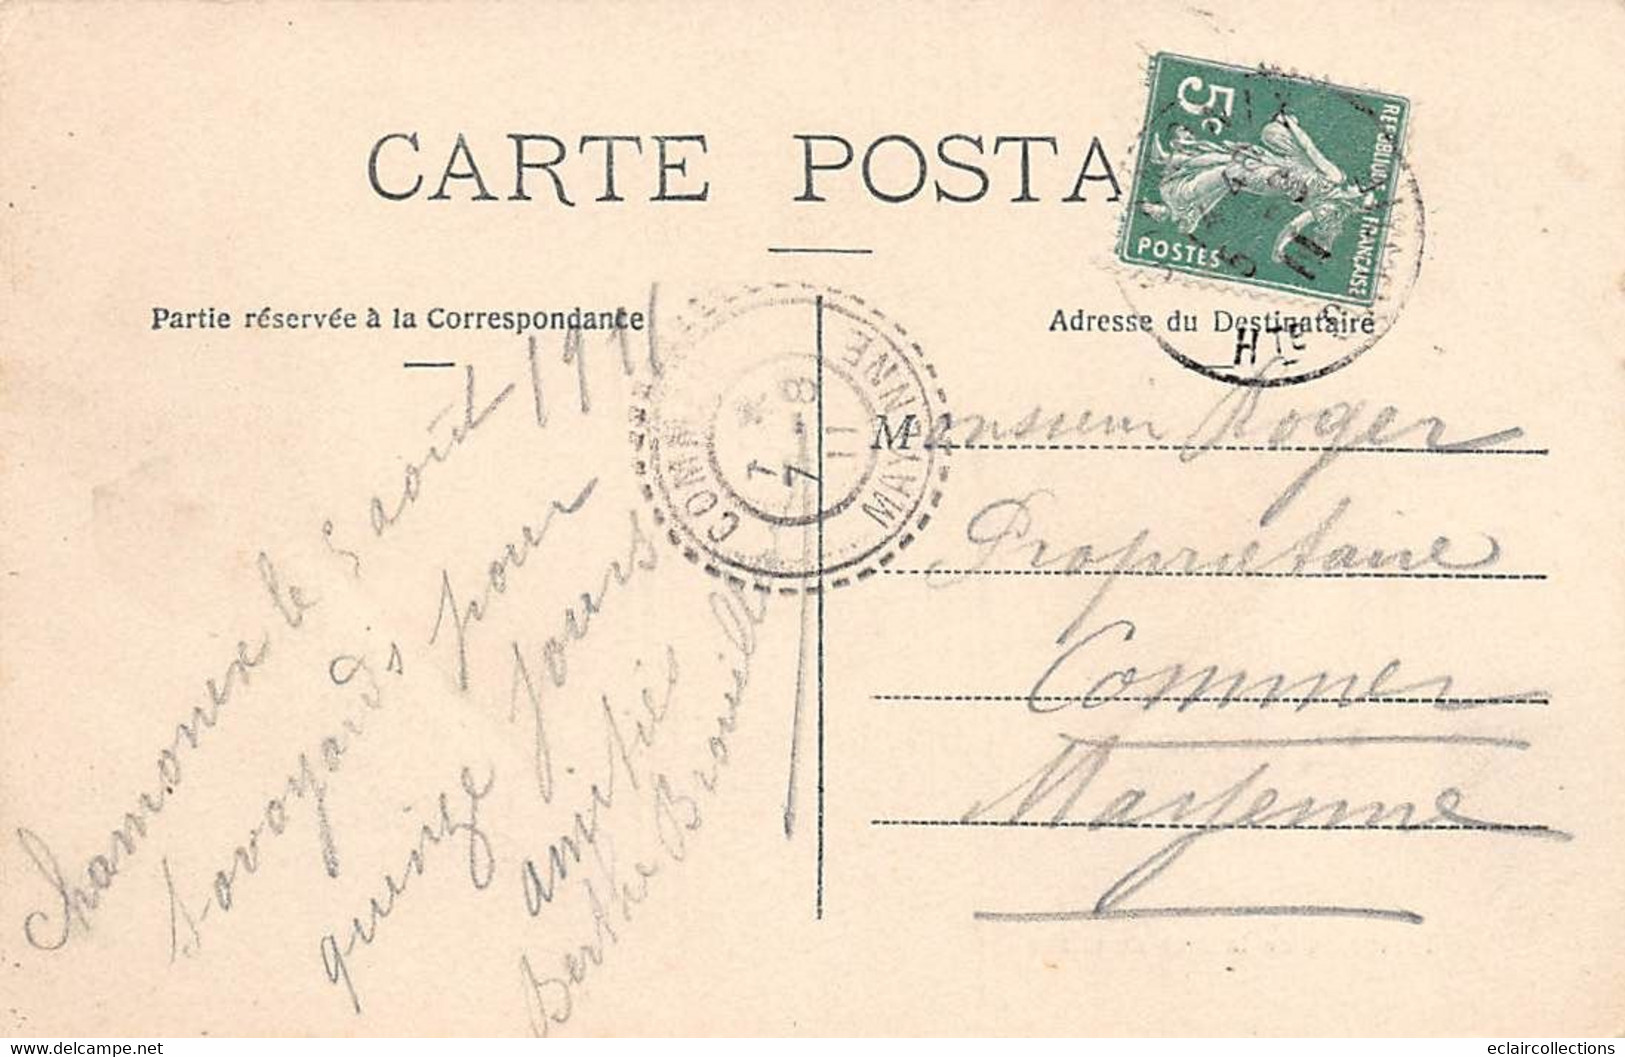 CARTE POSTA
5c
REPUBLIQUE FRANÇAISE
POSTES
Hte S
Partie réservée à la Correspondance
Adresse du Destinataire
COMMER
MAYENNE
7 - 8
11
Chamonix le 5 août 1911
Savoyards pour
quinze jours
amitiés
Berthe
M onsieur Roger
Propriétaire
Commer
Mayenne
www.delcampe.net
eclaircollections